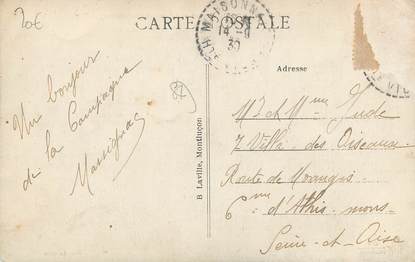 20€
CARTE POSTALE
Adresse
Un bonjour
de la Campagne
B Laville, Montluçon
Mr et Mme Jude
7 Villa des Oiseaux
Route de Morangis
d'Athis-mons
Seine-et-Oise